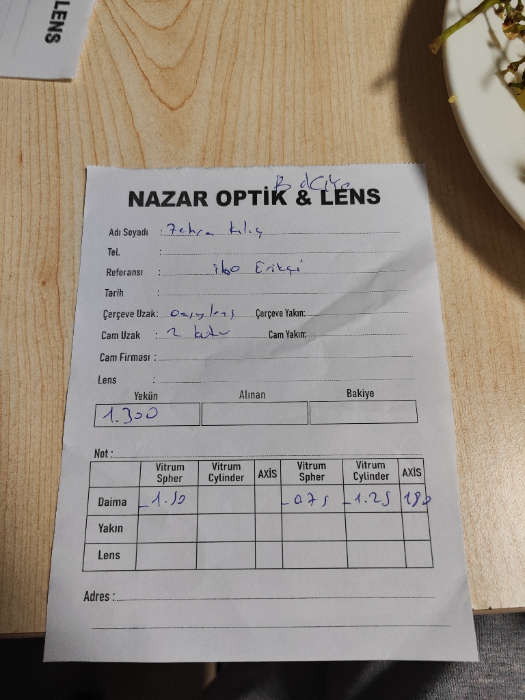 LENS
NAZAR OPTİK & LENS
Adı Soyadı : Zehra Kılıç
Tel. :
Referansı : ibo
Tarih :
Çerçeve Uzak: Çerçeve Yakın:
Cam Uzak : 2 Cam Yakın:
Cam Firması :
Lens :
Yekün Alınan Bakiye
1.300
Not :
Vitrum Spher Vitrum Cylinder AXİS Vitrum Spher Vitrum Cylinder AXİS
Daima -1.50 -075 -1.25 180
Yakın
Lens
Adres :